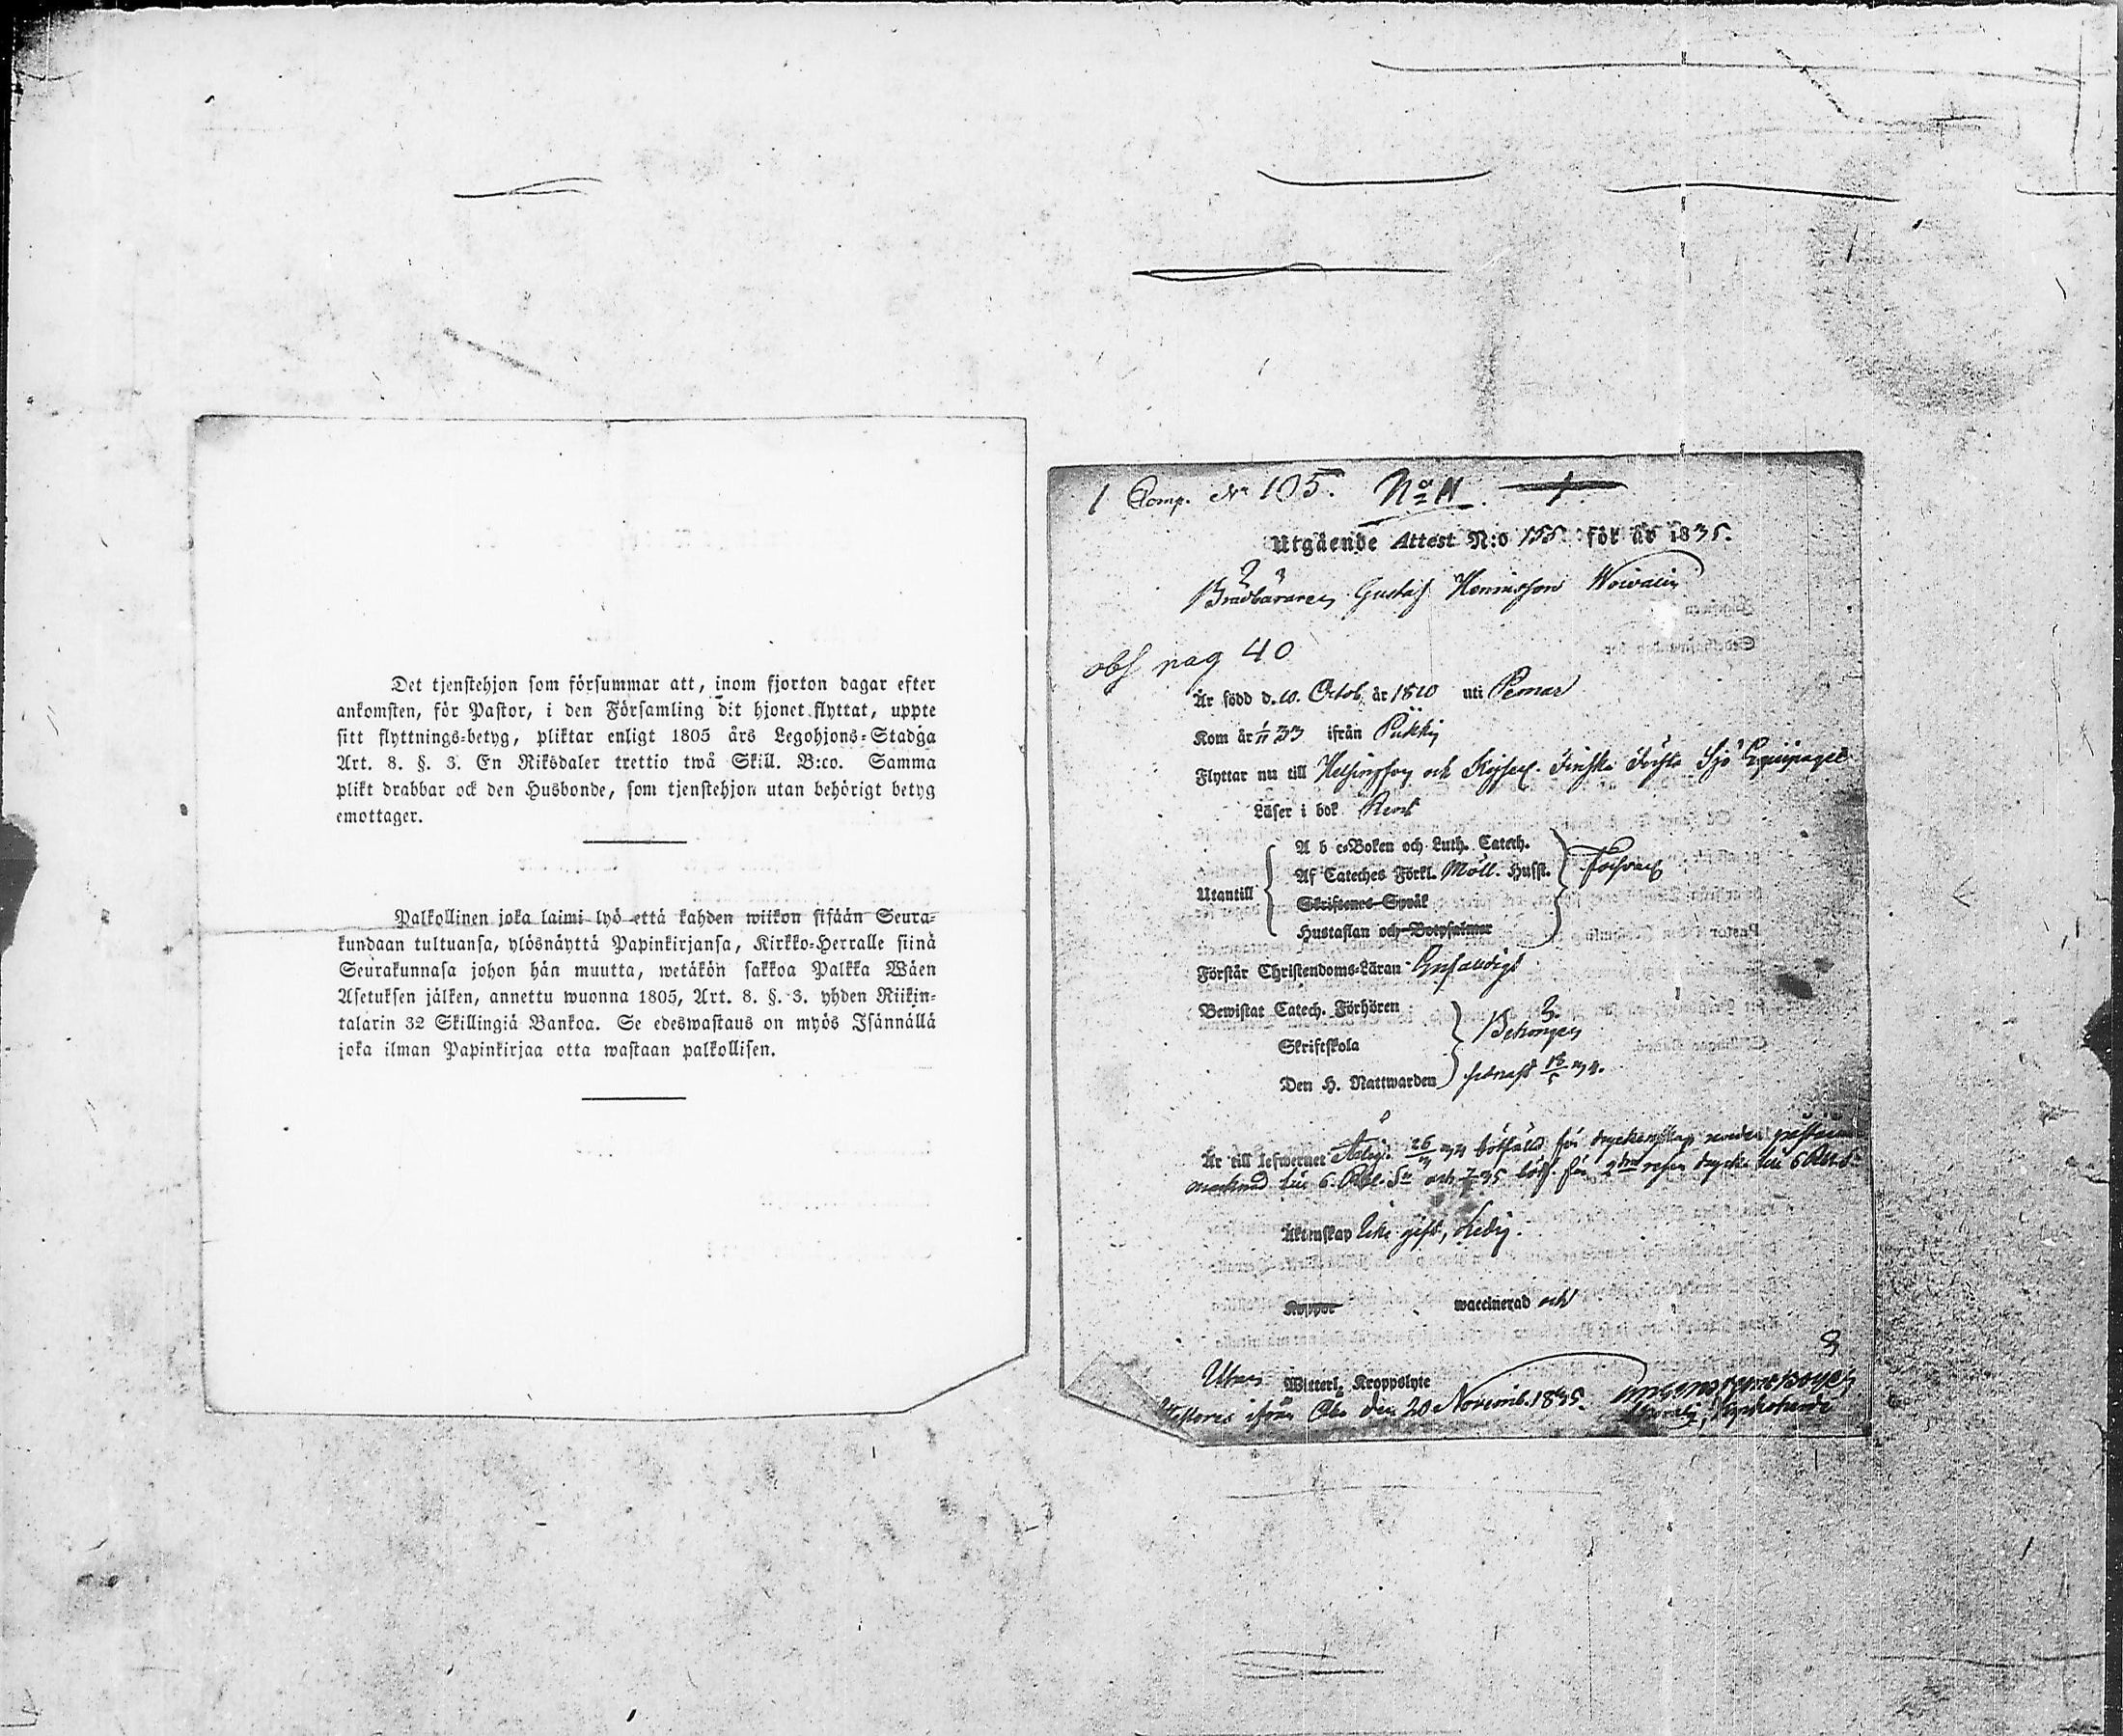 Det tjenstehjon som försummar att, inom fjorton dagar efter
ankomsten, för Pastor, i den Församling dit hjonet flyttat, uppte
sitt flyttnings-betyg, pliktar enligt 1805 års Legohjons-Stadga
Art. 8. §. 3. En Riksdaler trettio twå Skill. B:co. Samma
plikt drabbar ock den Husbonde, som tjenstehjon utan behörigt betyg
emottager.
Palkollinen joka laimi lyö että kahden wiikon sisään Seura-
kundaan tultuansa, ylösnäyttä Papinkirjansa, Kirkko-Herralle siinä
Seurakunnasa johon hän muutta, wetäkön sakkoa Palkka Wäen
Asetuksen jälken, annettu wuonna 1805, Art. 8. §. 3. yhden Riikin-
talarin 32 Skillingiä Bankoa. Se edeswastaus on myös Isännällä
joka ilman Papinkirjaa otta wastaan palkollisen.
1 Comp. No 105. No 11
Utgående Attest N:o för år 1835.
Brädbäraren Gustaf
obs pag 40
Är född d. 10. Octob. år 1810 uti Pemar
Kom år 1/11 33 ifrån Pikkis
Flyttar nu till Helsingfors och Kejserl. Finska Första Sjö Equipaget
Läser i bok Rent
A b c-Boken och Luth. Catech.
Af Cateches Förkl. Möll. Husst.
Utantill
Skriftenes Språk
Försvarl.
Hustaflan och Botpsalmer
Förstår Christendoms-Läran
Bewistat Catech. Förhören
Skriftskola
Den H. Nattwarden senast 18/5 34.
Är till lefwernet 26/3 34 bötfäld för dryckenskap under
marknad till 6. Rbl. och 35 för 2dra resan
Äktenskap Icke gift, Ledig.
Koppor waccinerad och
Utan Witterl. Kroppslyte
Attesteras ifrån Åbo den 20 Novemb. 1835.